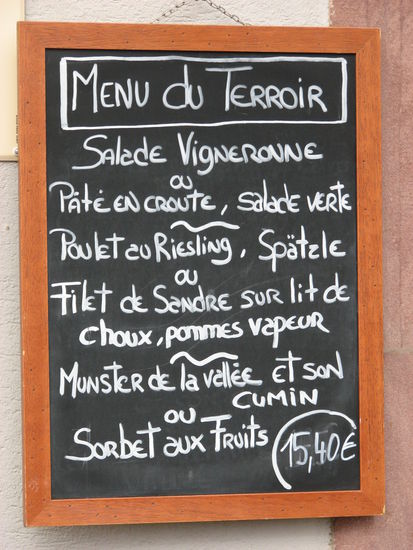 MENU DU TERROIR
SALADE VIGNERONNE
OU
PÂTÉ EN CROUTE, SALADE VERTE
POULET AU RIESLING, SPÄTZLE
OU
FILET DE SANDRE SUR LIT DE
CHOUX, POMMES VAPEUR
MUNSTER DE LA VALLÉE ET SON
CUMIN
OU
SORBET AUX FRUITS
15,40€